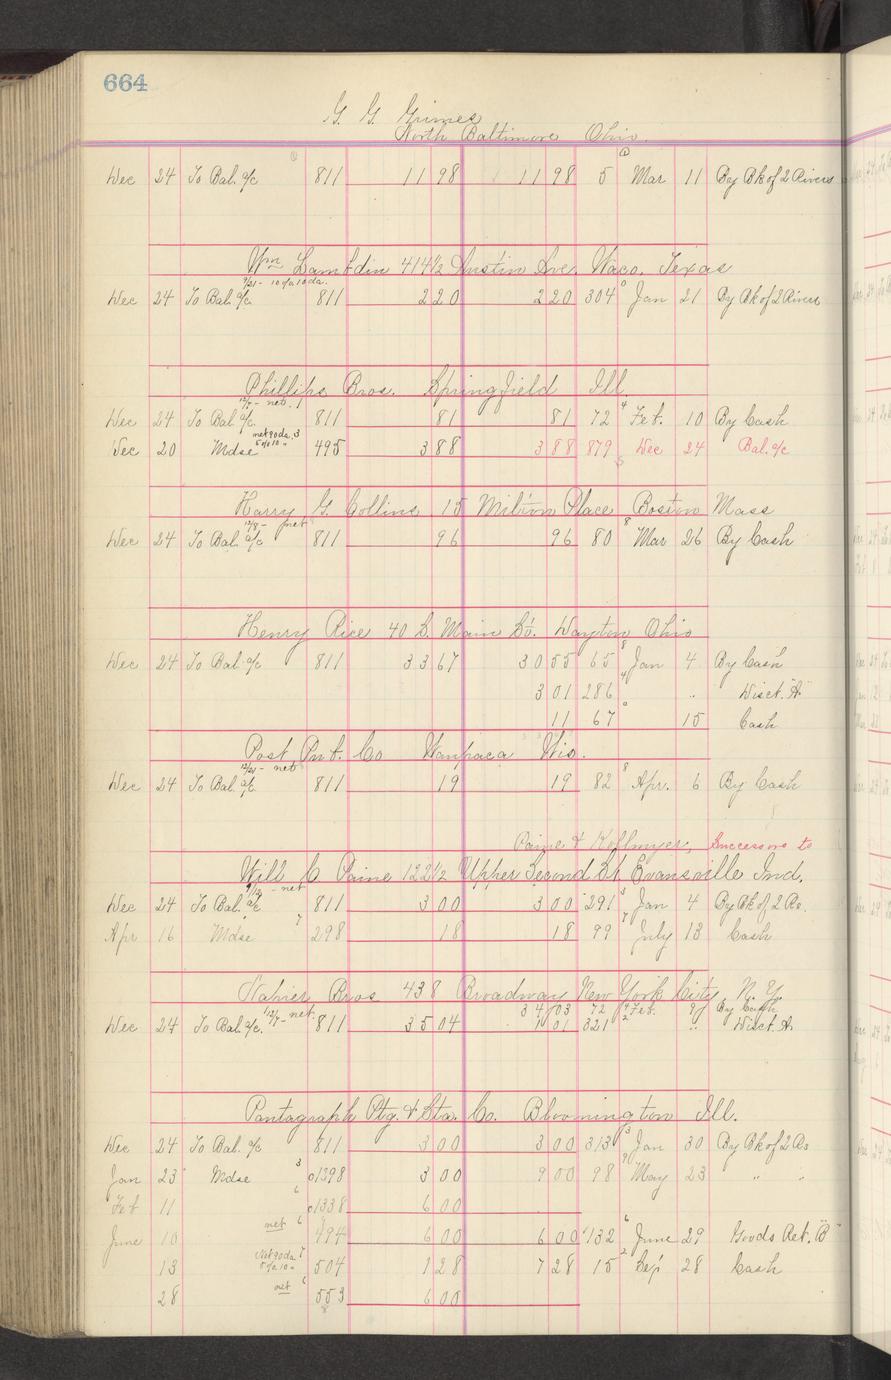 664
G. G. Grimes
North Baltimore Ohio.
Dec 24 To Bal. a/c 811 11 98 11 98 5 Mar 11 By Bk of 2 Rivers
Wm Lambdin 414½ Austin Ave. Waco, Texas
Dec 24 To Bal. a/c 811 2 20 2 20 304 Jan 21 By Bk of 2 Rivers
Phillips Bros. Springfield Ill.
net
Dec 24 To Bal. a/c 811 81 81 72 Feb. 10 By Cash
net 90 da. 3
Dec 20 Mdse 495 3 88 3 88 879 Dec 24 Bal. a/c
Harry G. Collins 15 Milton Place Boston Mass
12/8 - net
Dec 24 To Bal. a/c 811 96 96 80 Mar 26 By Cash
Henry Rice 40 S. Main St. Dayton Ohio
Dec 24 To Bal a/c 811 33 67 30 55 65 Jan 4 By Cash
3 01 286 " Disct. "A"
11 67 15 Cash
Post Pub. Co Waupaca Wis.
12/21 - net
Dec 24 To Bal. a/c 811 19 19 82 Apr. 6 By Cash
Paine & Successors to
Will C Paine 122½ Upper Second St Evansville Ind.
net
Dec 24 To Bal. a/c 811 3 00 3 00 291 Jan 4 By Bk of 2 Rs.
Apr 16 Mdse 7 298 18 18 99 July 13 Cash
Napier Bros 438 Broadway New York City N. Y.
34 03 72 Feb. 9 By Cash
12/7 - net
Dec 24 To Bal a/c. 811 35 04 1 01 321 " Disct. A
Pantagraph Ptg. & Sta. Co. Bloomington Ill.
Dec 24 To Bal a/c 811 3 00 3 00 313 Jan 30 By Bk of 2 Rs
Jan 23 Mdse 3 1398 3 00 9 00 98 May 23 " "
Feb 11 6 1338 6 00
June 10 net 6 494 6 00 6 00 132 June 29 Goods Ret. "B"
13 Net 90 da. 7 504 1 28 7 28 15 Sep 28 Cash
28 net 6 553 6 00